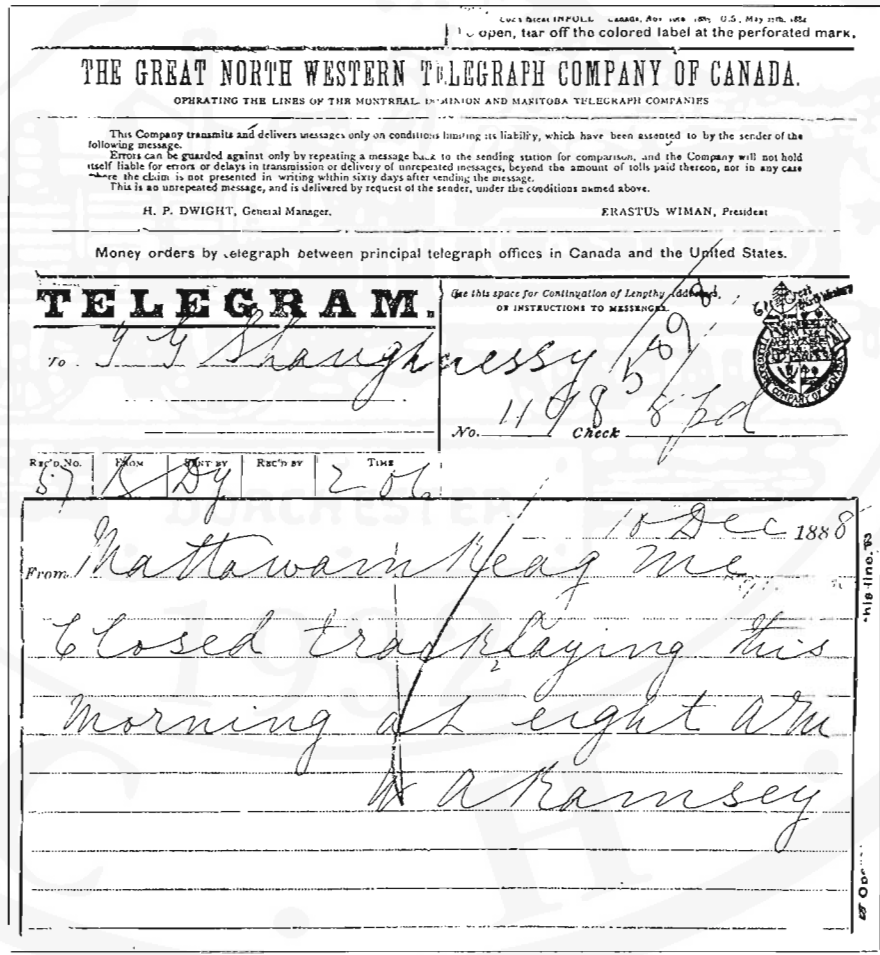 open, tear off the colored label at the perforated mark.
THE GREAT NORTH WESTERN TELEGRAPH COMPANY OF CANADA.
OPERATING THE LINES OF THE MONTREAL, DOMINION AND MANITOBA TELEGRAPH COMPANIES
This Company transmits and delivers messages only on conditions limiting its liability, which have been assented to by the sender of the
following message.
Errors can be guarded against only by repeating a message back to the sending station for comparison, and the Company will not hold
itself liable for errors or delays in transmission or delivery of unrepeated messages, beyond the amount of tolls paid thereon, nor in any case
where the claim is not presented in writing within sixty days after sending the message.
This is an unrepeated message, and is delivered by request of the sender, under the conditions named above.
H. P. DWIGHT, General Manager. ERASTUS WIMAN, President
Money orders by telegraph between principal telegraph offices in Canada and the United States.
TELEGRAM.
Use this space for Continuation of Lengthy Addresses,
OR INSTRUCTIONS TO MESSENGER.
To T G Shaughnessy
No. Check 8 pd
REC'D No. FROM SENT BY REC'D BY TIME
57 B Dy
10 Dec 1888
From Mattawamkeag Me
Closed tracklaying this
morning at eight am
W A Ramsey
DORCHESTER
1932